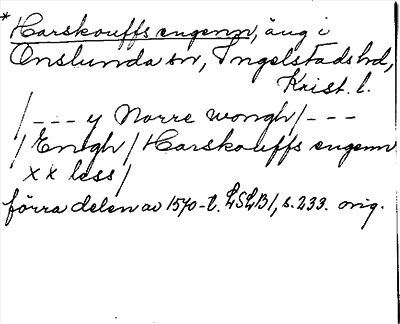 * Harskouffs engenn, äng i
Onslunda sn, Ingelstads hd,
Krist. l.
/--- y Norre wongh/---
/Engh/Harskouffs engenn
xx less/
förra delen av 1570-t. LSLB1, s. 233. orig.